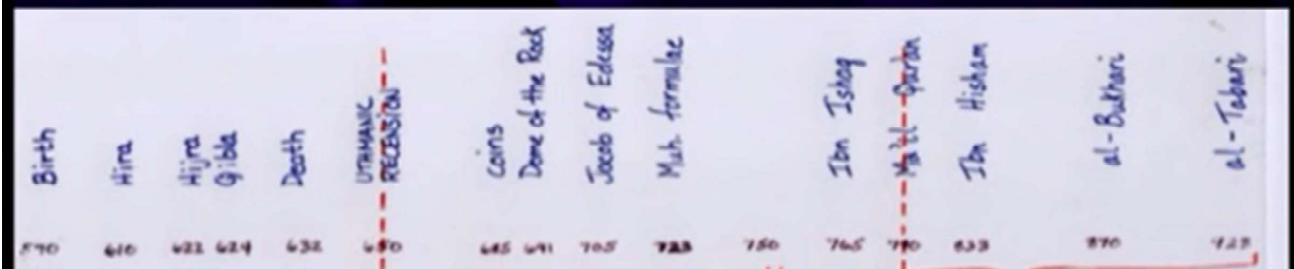 Birth
Hira
Hijra
Qibla
Death
UTHMANIC
RECENSION
Coins
Dome of the Rock
Jacob of Edessa
Muh formulae
Ibn Ishaq
Ma'il Qur'an
Ibn Hisham
al-Bukhari
al-Tabari
570 610 622 624 632 650 685 691 705 723 750 765 790 833 870 923